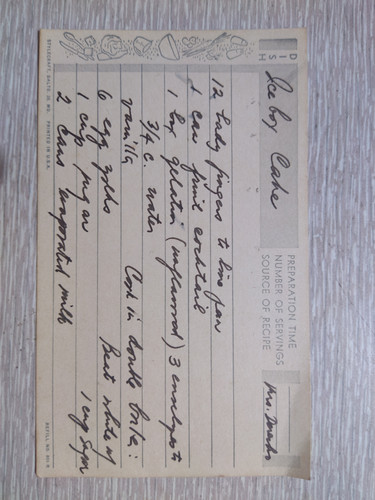 DISH
Ice box Cake
PREPARATION TIME
NUMBER OF SERVINGS
SOURCE OF RECIPE
Mrs.
12 Lady fingers to line pan
1 can fruit cocktail
1 box gelatin (unflavored) 3 envelopes to
3/4 c. water
vanilla Cook in double boiler:
6 egg yolks Beat whites w/
1 cup sugar 1 cup sugar
2 cans evaporated milk
STYLECRAFT, BALTO. 30, MD. PRINTED IN U.S.A. REFILL NO.